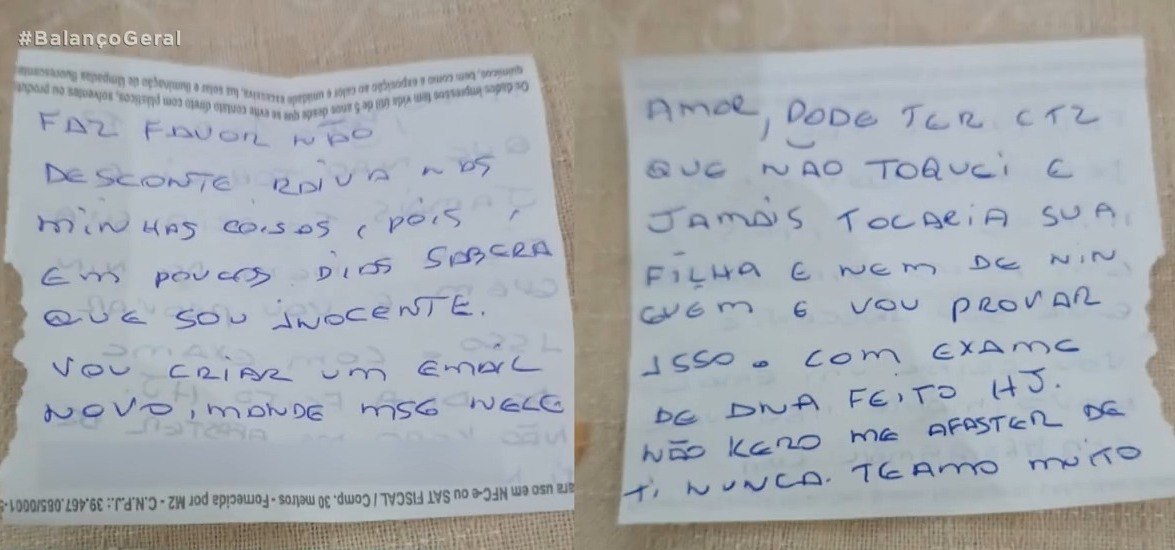 #BalançoGeral
químicos, bem como a exposição ao calor e umidade excessiva, luz solar e iluminação de lâmpadas fluorescentes
Os dados impressos tem vida útil de 5 anos desde que se evite contato direto com plásticos, solventes ou produtos
FAZ FAVOR NÃO
DESCONTE RAIVA NAS
MINHAS COISAS, POIS,
EM POUCOS DIAS SABERA
QUE SOU INOCENTE.
VOU CRIAR UM EMAIL
NOVO, MANDE MSG NELE
ara uso em NFC-e ou SAT FISCAL / Comp. 30 metros - Fornecida por M2 - C.N.P.J.: 39.467.085/0001-
AMOR, PODE TER CTZ
QUE NÃO TOQUEI E
JAMAIS TOCARIA SUA
FILHA E NEM DE NIN
GUEM E VOU PROVAR
ISSO. COM EXAME
DE DNA FEITO HJ.
NÃO KERO ME AFASTER DE
TI NUNCA. TE AMO MUITO